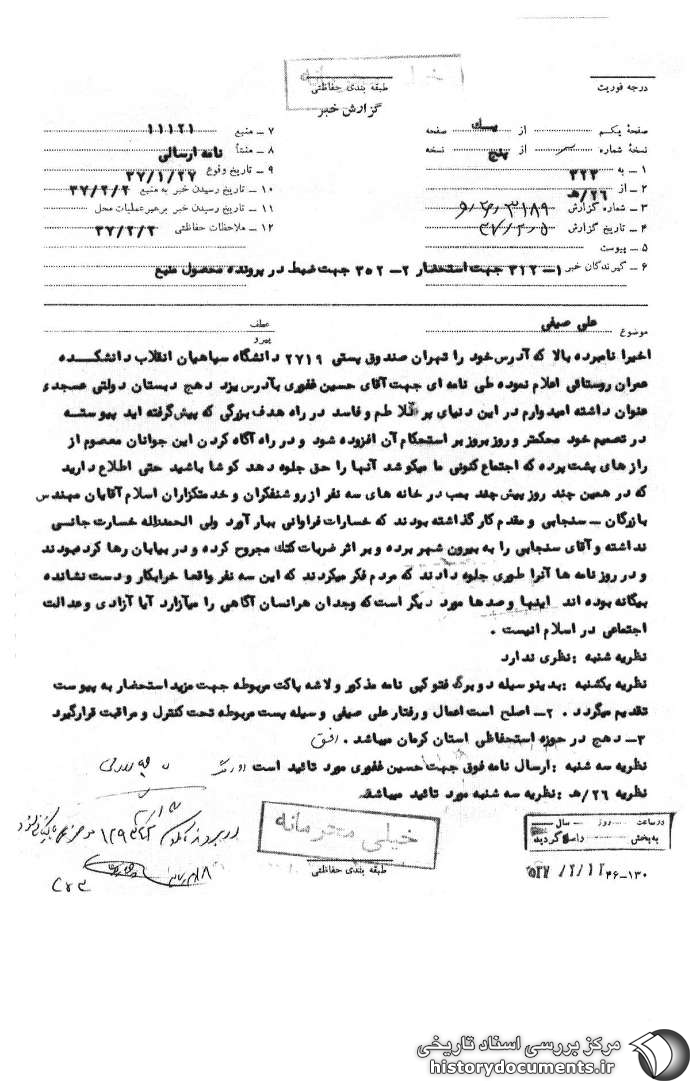 خیلی محرمانه
درجه فوریت
طبقه بندی حفاظتی
گزارش خبر
صفحهٔ یکم از یک صفحه
نسخهٔ شماره از پنج نسخه
۱ ـ به ۳۲۳
۲ ـ از ۲۶/هـ
۳ ـ شماره گزارش
۴ ـ تاریخ گزارش
۵ ـ پیوست
۶ ـ گیرندگان خبر ۱ـ ۳۲۲ جهت استحضار ۲ـ ۳۵۲ جهت ضبط در پرونده محصول منبع
۷ ـ منبع ۱۱۱۲۱
۸ ـ منشأ نامه ارسالی
۹ ـ تاریخ وقوع ۳۷/۱/۲۷
۱۰ ـ تاریخ رسیدن خبر به منبع ۳۷/۲/۲
۱۱ ـ تاریخ رسیدن خبر برهبر عملیات محل
۱۲ ـ ملاحظات حفاظتی ۳۷/۲/۲
موضوع علی صیفی
عطف
پیرو
اخیرا نامبرده بالا که آدرس خود را تهران صندوق پستی ۲۷۱۹ دانشگاه سپاهیان انقلاب دانشکده
عمران روستائی اعلام نموده طی نامه ای جهت آقای حسین غفوری بآدرس یزد دهج دبستان دولتی عسجدی
عنوان داشته امیدوارم در این دنیای پر تلاطم و فاسد در راه هدف بزرگی که پیش گرفته اید پیوسته
در تصمیم خود محکمتر و روز بروز بر استحکام آن افزوده شود و در راه آگاه کردن این جوانان معصوم از
راز های پشت پرده که اجتماع کنونی ما میکوشد آنها را حق جلوه دهد کوشا باشید حتی اطلاع دارید
که در همین چند روز پیش چند بمب در خانه های سه نفر از روشنفکران و خدمتگزاران اسلام آقایان مهندس
بازرگان ـ سنجابی و مقدم کار گذاشته بودند که خسارات فراوانی ببار آورد ولی الحمدلله خسارت جانسی
نداشته و آقای سنجابی را به بیرون شهر برده و بر اثر ضربات کتک مجروح کرده و در بیابان رها کرده بودند
و در روزنامه ها آنرا طوری جلوه دادند که مردم فکر میکردند که این سه نفر واقعا خرابکار و دست نشانده
بیگانه بوده اند اینها و صدها مورد دیگر است که وجدان هر انسان آگاهی را میآزارد آیا آزادی و عدالت
اجتماعی در اسلام انیست .
نظریه شنبه : نظری ندارد
نظریه یکشنبه : بدینوسیله دو برگ فتوکپی نامه مذکور و لاشه پاکت مربوطه جهت مزید استحضار به پیوست
تقدیم میگردد . ۲ـ اصلح است اعمال و رفتار علی صیفی وسیله پست مربوطه تحت کنترل و مراقبت قرارگیرد
۳ـ دهج در حوزه استحفاظی استان کرمان میباشد . افق
نظریه سه شنبه : ارسال نامه فوق جهت حسین غفوری مورد تائید است
نظریه ۲۶/هـ : نظریه سه شنبه مورد تائید میباشد
خیلی محرمانه
طبقه بندی حفاظتی
در ساعت روز سال
به بخش واصل گردید
۴۶-۱۳۰
مرکز بررسی اسناد تاریخی
historydocuments.ir